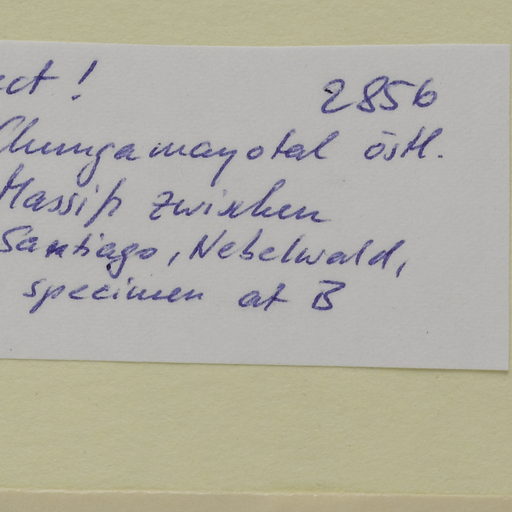 ect! 2856
Chungamayotal östl.
Massiv zwischen
Santiago, Nebelwald,
specimen at B